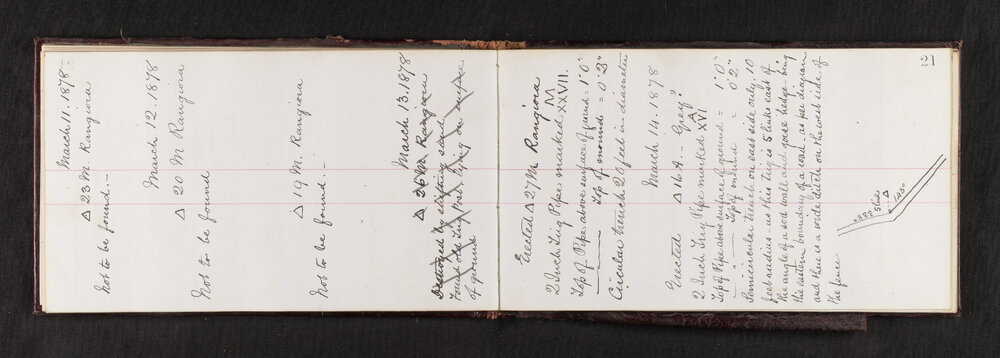 March 11. 1878
△ 23 M. Rangiora
Not to be found.—
March 12. 1878
△ 20 M Rangiora
Not to be found
△ 19 M. Rangiora
Not to be found.—
March 13. 1878
△ 26 M Rangiora
Destroyed by shifting sand
Found old Trig Post lying on surface
of ground
21
Erected △ 27 M Rangiora
2 Inch Trig Pipe marked M XXVII.
Top of Pipe above surface of ground = 1'0"
Top of mound = 0'3"
Circular trench 20 feet in diameter
March 14. 1878
Erected △ 16 A — Grey?
2 Inch Trig Pipe marked A XVI
Top of Pipe above surface of ground = 1'0"
— " — Top of mound = 0'2"
Semicircular trench on east side only. 10
feet radius — as this Trig is 5 links east of
the angle of a sod wall and gorse hedge being
the eastern boundary of a road as per diagram
and there is a wide ditch on the west side of
the fence
5 links
△